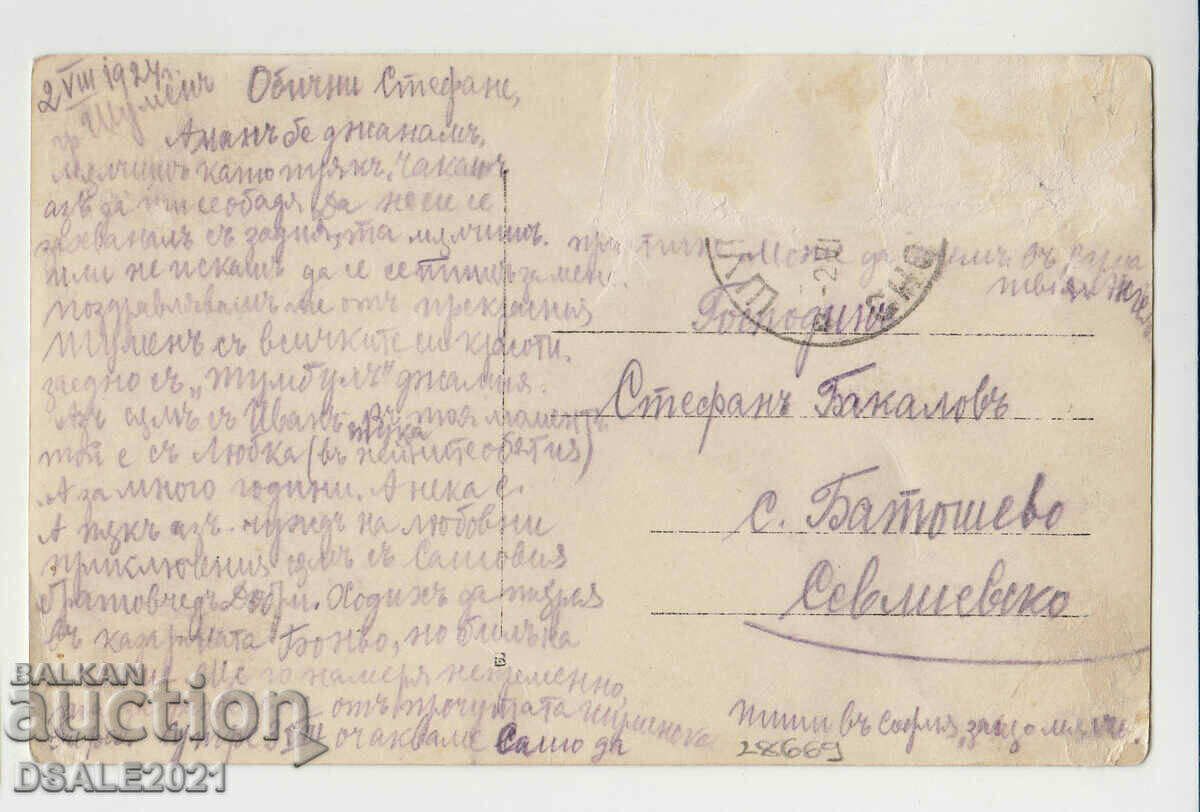 2 VIII 1924 г.
гр Шуменъ
Обични Стефане,
Аманъ бе джанамъ,
мълчишъ като пукъ, чакашъ
азъ да ти се обадя да не си се
захваналъ съ задния, та мълчишъ.
или не искашъ да се сетишъ за мен
поздравлявамъ те отъ прекрасния
Шуменъ съ всичките си красоти.
заедно съ „Тумбулъ" джамия.
Азъ съмъ съ Иванъ, въ тоя моментъ
тука
той е съ Любка (въ нейните обятия)
А за много години. А нека е.
А пъкъ азъ чуждъ на любовни
приключения съмъ съ Сашовия
братовчедъ Добри. Ходихъ да търся
въ казармата Боньо, но билъ на
Ще го намеря непременно,
отъ прочутата шуменска
утре VIII очакваме Сашо да
пристигне може да идемъ въ Варна
твоя
ШУМЕНЪ
-2.VIII
Господинъ
Стефанъ Бакаловъ
с. Батошево
Севлиевско
пиши въ София, защо мълчишъ.
28669
BALKAN
auction
DSALE2021